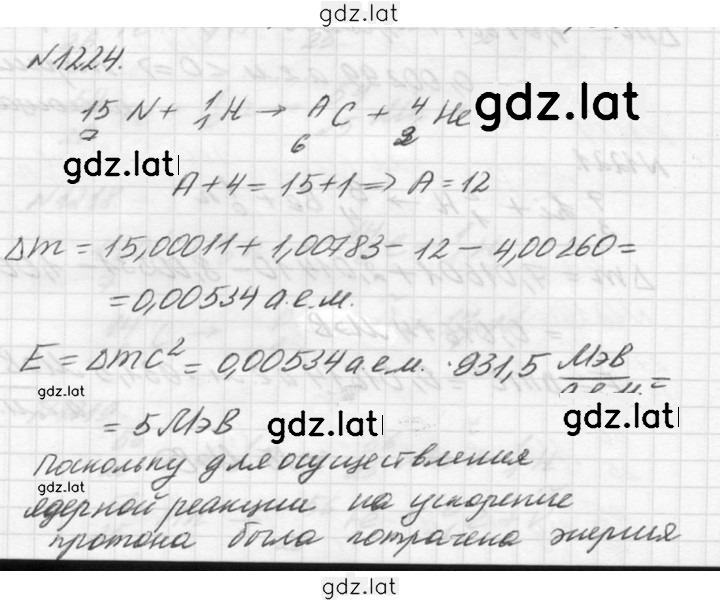 gdz.lat
N1224.
¹⁵₇N + ¹₁H → ᴬ₆C + ⁴₂He
gdz.lat
gdz.lat
A + 4 = 15 + 1 => A = 12
Δm = 15,00011 + 1,00783 - 12 - 4,00260 =
= 0,00534 а.е.м.
E = Δmc² = 0,00534 а.е.м. · 931,5 МэВ/а.е.м. =
gdz.lat
gdz.lat
= 5 МэВ
gdz.lat
Поскольку для осуществления
gdz.lat
ядерной реакции на ускорение
протона была потрачена энергия
gdz.lat